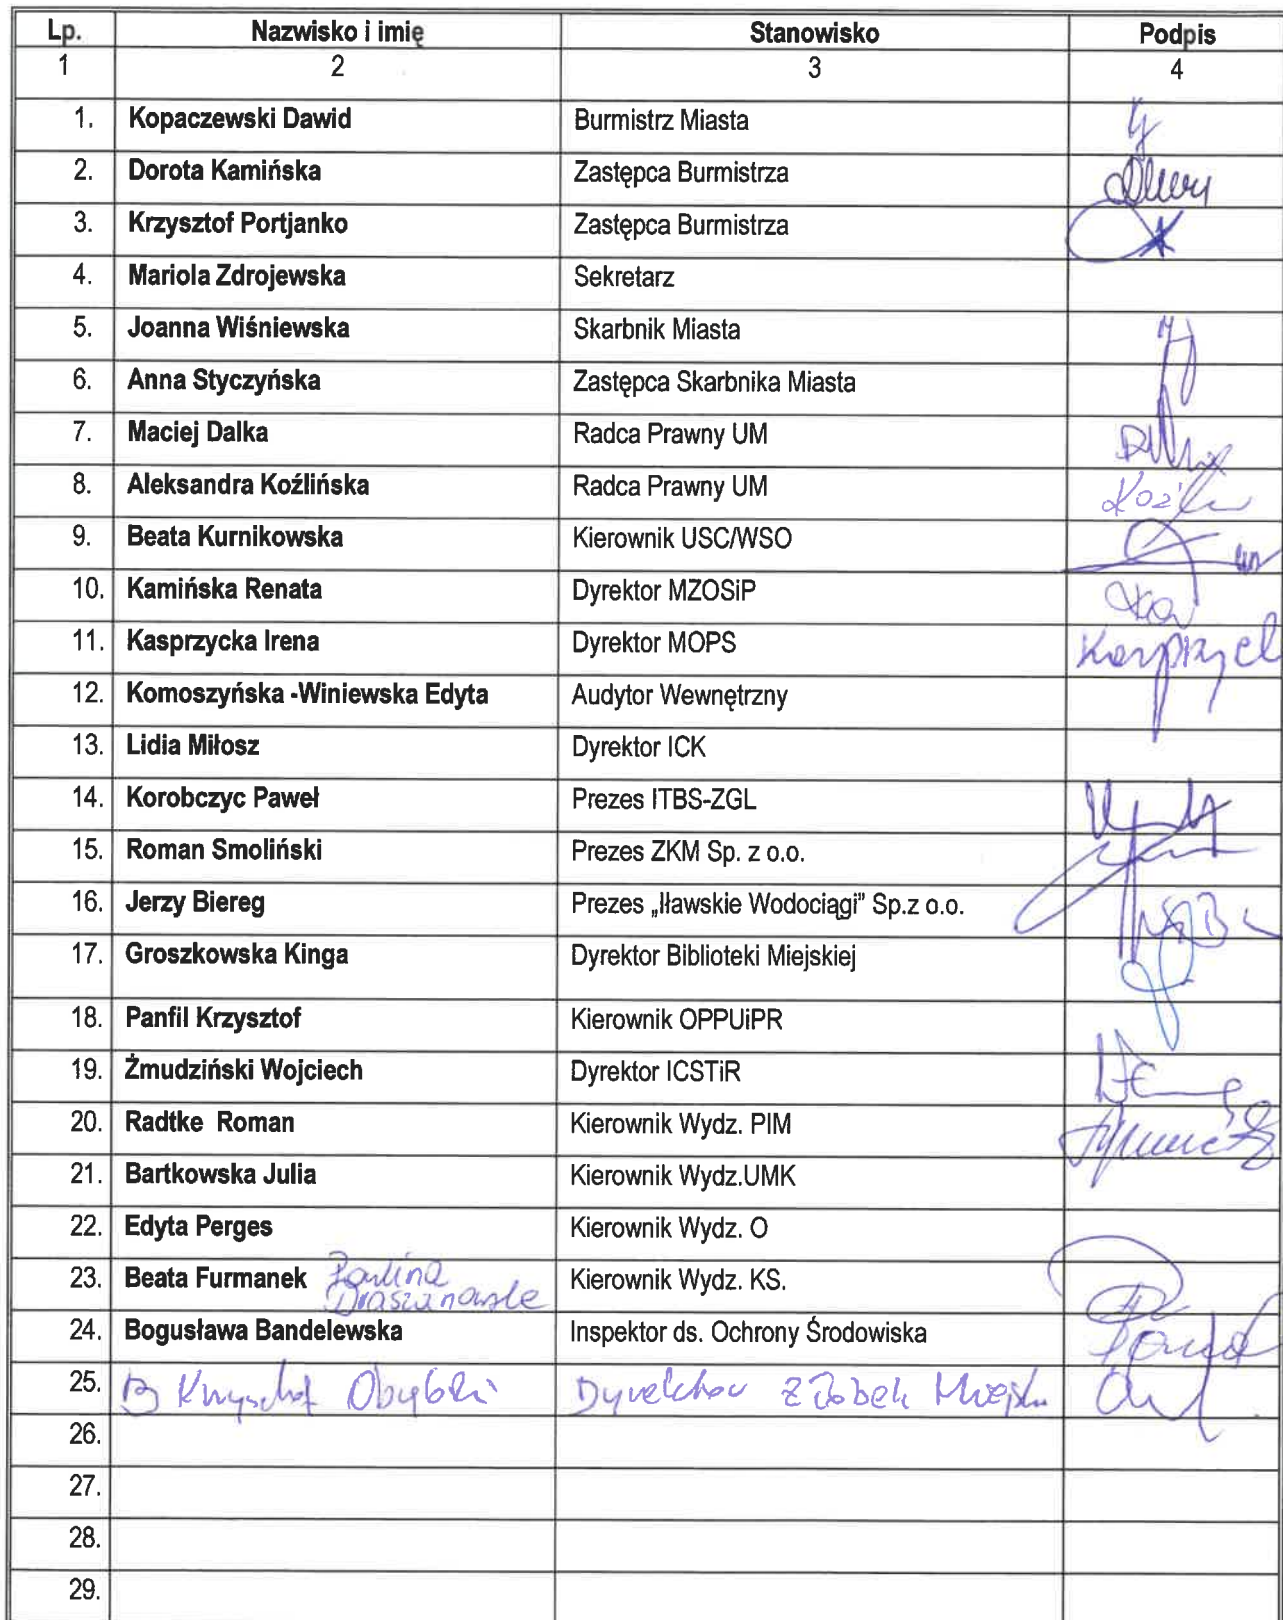 Lp. Nazwisko i imię Stanowisko Podpis
1 2 3 4
1. Kopaczewski Dawid Burmistrz Miasta
2. Dorota Kamińska Zastępca Burmistrza
3. Krzysztof Portjanko Zastępca Burmistrza
4. Mariola Zdrojewska Sekretarz
5. Joanna Wiśniewska Skarbnik Miasta
6. Anna Styczyńska Zastępca Skarbnika Miasta
7. Maciej Dalka Radca Prawny UM
8. Aleksandra Koźlińska Radca Prawny UM
9. Beata Kurnikowska Kierownik USC/WSO
10. Kamińska Renata Dyrektor MZOSiP
11. Kasprzycka Irena Dyrektor MOPS
12. Komoszyńska -Winiewska Edyta Audytor Wewnętrzny
13. Lidia Miłosz Dyrektor ICK
14. Korobczyc Paweł Prezes ITBS-ZGL
15. Roman Smoliński Prezes ZKM Sp. z o.o.
16. Jerzy Biereg Prezes „Iławskie Wodociągi” Sp.z o.o.
17. Groszkowska Kinga Dyrektor Biblioteki Miejskiej
18. Panfil Krzysztof Kierownik OPPUiPR
19. Żmudziński Wojciech Dyrektor ICSTiR
20. Radtke Roman Kierownik Wydz. PIM
21. Bartkowska Julia Kierownik Wydz.UMK
22. Edyta Perges Kierownik Wydz. O
23. Beata Furmanek Paulina Kierownik Wydz. KS.
24. Bogusława Bandelewska Inspektor ds. Ochrony Środowiska
25. Krzysztof Dyrektor Żłobek
26.
27.
28.
29.